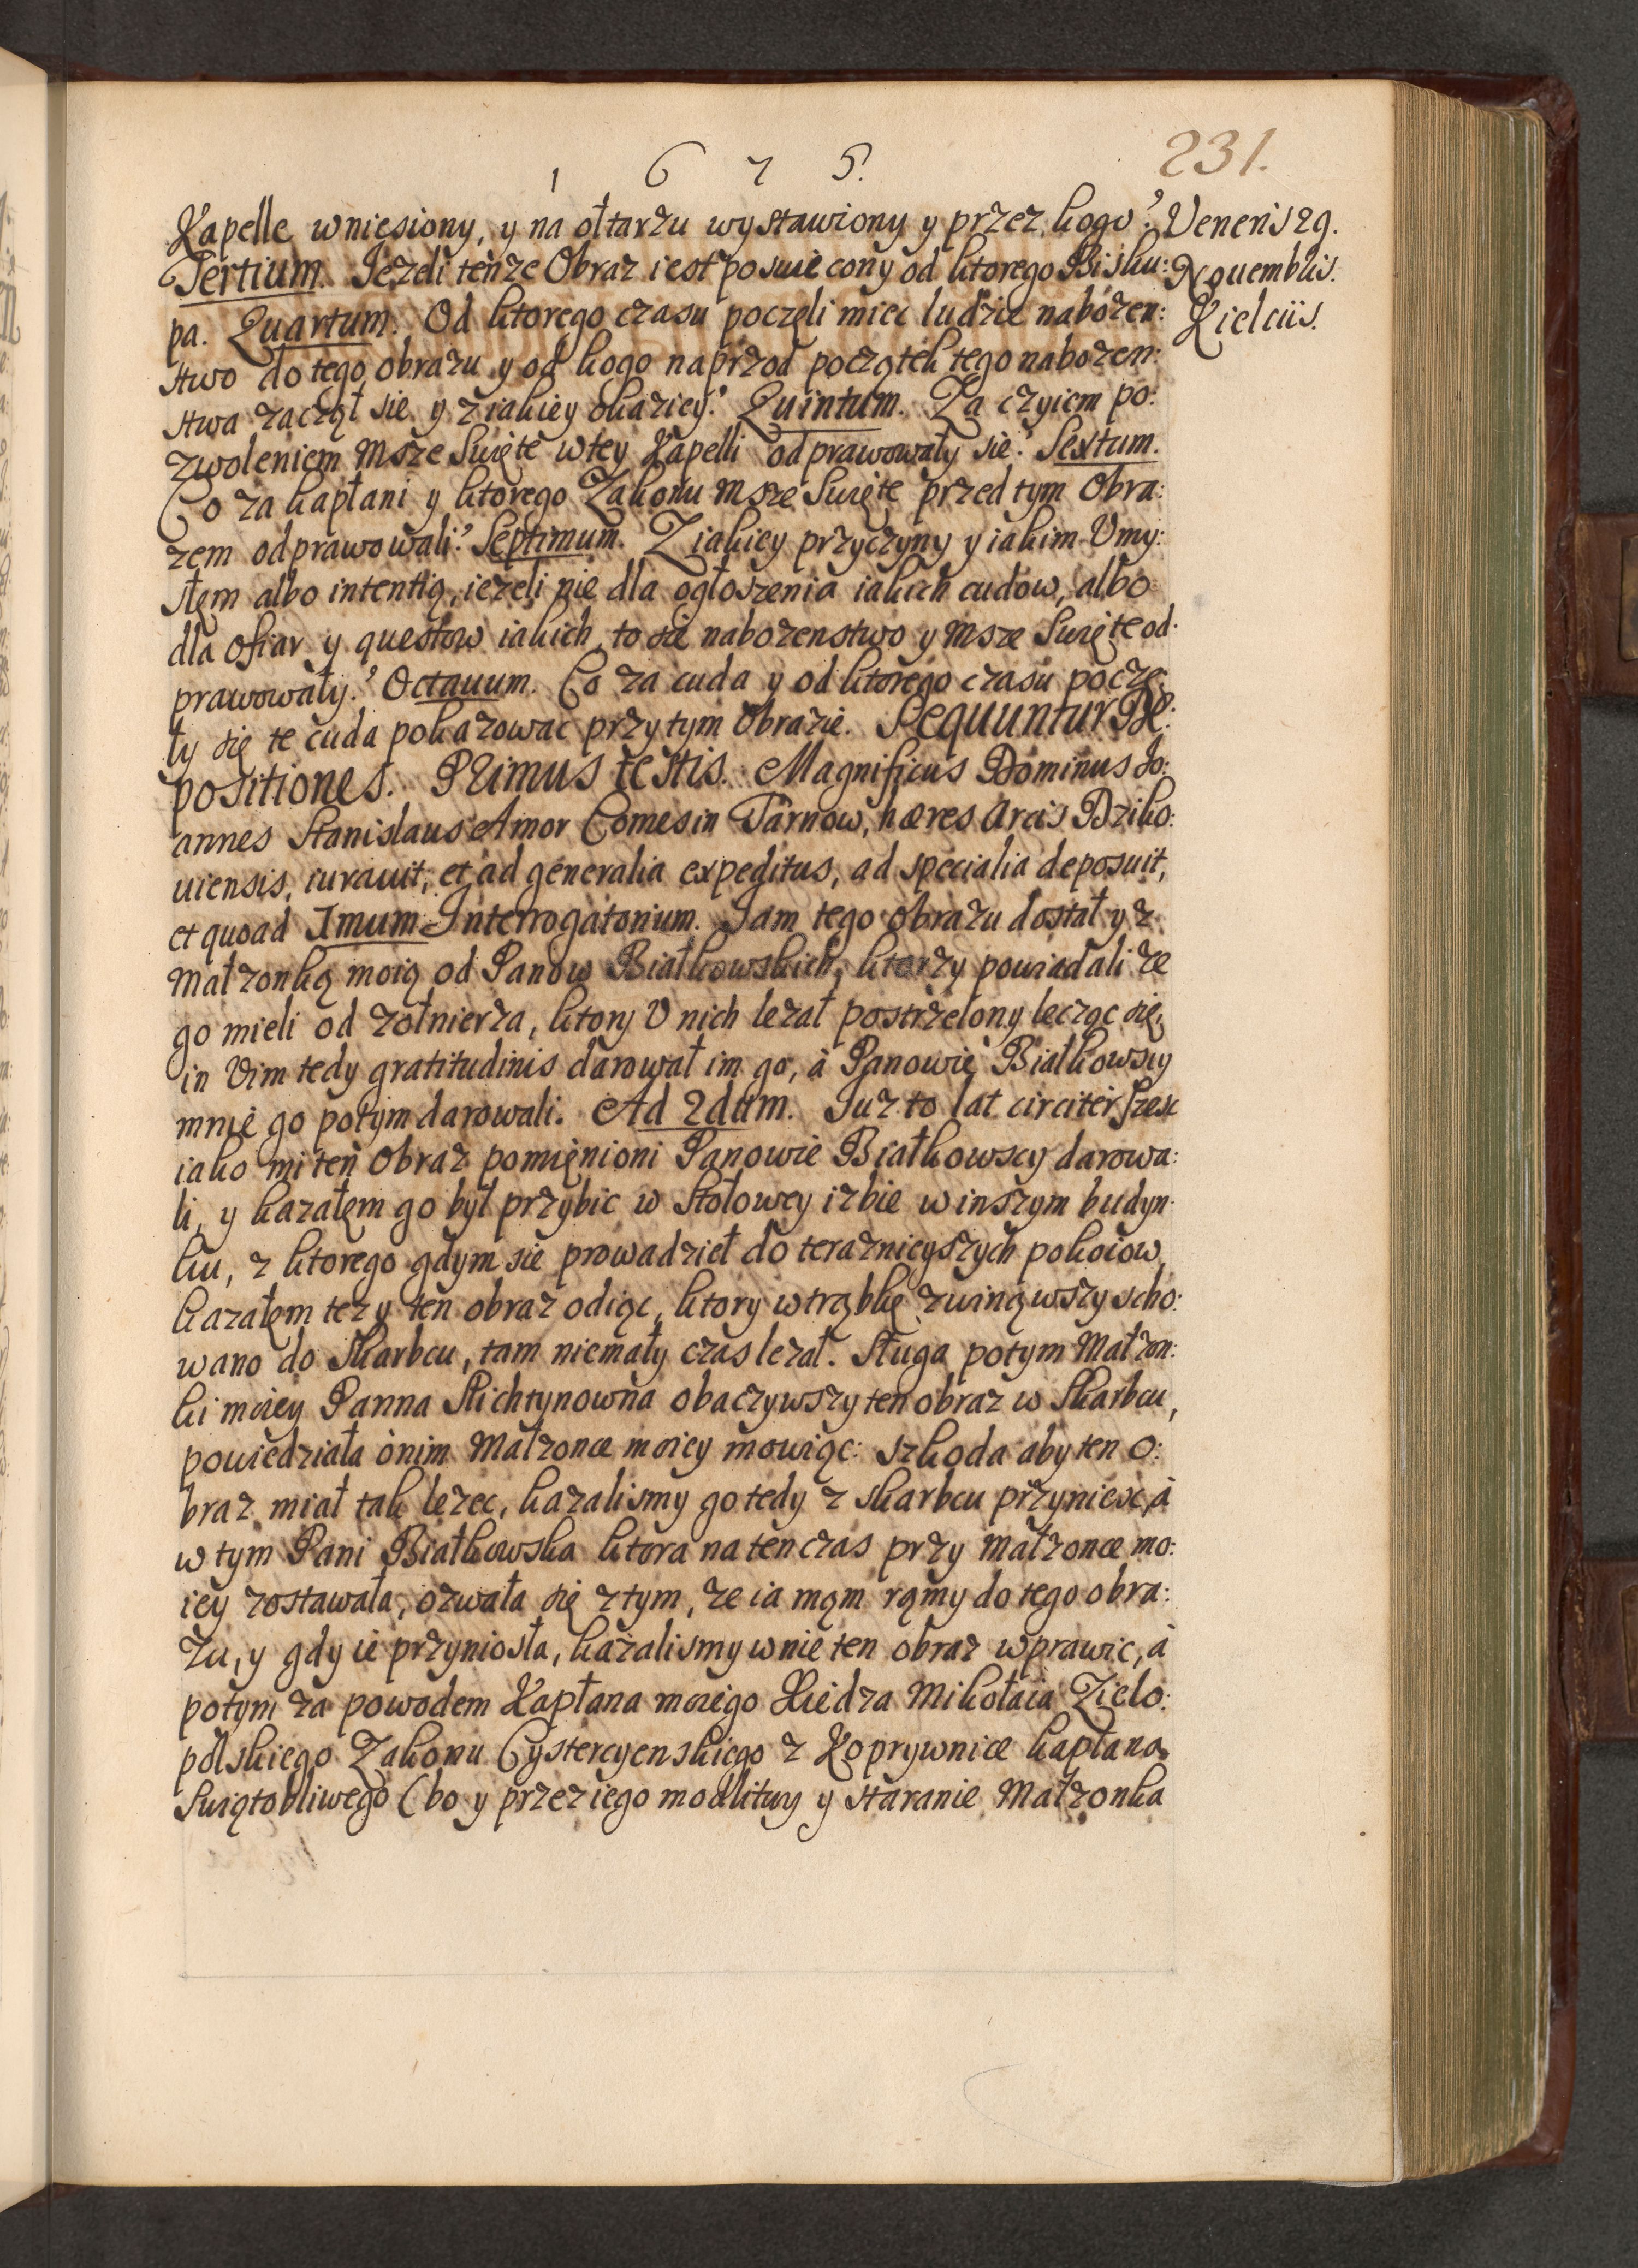 1 6 7 5.
231.
Kapelle wniesiony, y na ołtarzu wystawiony y przez kogo?
Tertium. Jezeli tenze Obraz iest poswiecony od ktorego Bisku:
pa. Quartum. Od ktorego czasu poczęli miec ludzie nabożen:
stwo do tego obrazu y od kogo naprzod początek tego nabozen:
stwa zaczął sie y z iakiey okaziey? Quintum. Za czyiem po:
zwoleniem Msze Swięte w tey Kapelli odprawowały sie? Sextum.
Co za kapłani y ktorego Zakonu Msze Swięte przed tym Obra:
zem odprawowali? Septimum. Z iakiey przyczyny y iakim Vmy:
słem albo intentią, iezeli nie dla ogłoszenia iakich cudow, albo
dla ofiar y questow iakich, to sie nabozenstwo y Msze Swięte od:
prawowały? Octauum. Co za cuda y od ktorego czasu poczę:
ły się te cuda pokazowac przy tym Obrazie. Sequuntur De:
positiones. Primus testis. Magnificus Dominus Jo:
annes Stanislaus Amor Comes in Tarnow, hæres Arcis Dziko:
uiensis, iurauit, et ad generalia expeditus, ad specialia deposuit,
et quoad Imum Interrogatorium. Jam tego obrazu dostał y z
Małzonką moią od Panow Białkowskich, ktorzy powiadali ze
go mieli od zołnierza, ktory V nich lezał postrzelony lecząc się,
in Vim tedy gratitudinis darował im go, à Panowie Białkowscy
mnie go potym darowali. Ad 2dum. Juz to lat circiter szesc
iako mi ten Obraz pomięnioni Panowie Białkowscy darowa:
li, y kazałem go był przybic w Stołowey izbie w inszym budyn:
ku, z ktorego gdym sie prowadzieł do teraznieyszych pokoiow,
kazałem tez y ten obraz odiąc, ktory w trąbkę zwinąwszy scho:
wano do Skarbcu, tam niemały czas lezał. Sługa potym Małzon:
ki moiey Panna Slichtynowna obaczywszy ten obraz w Skarbcu,
powiedziała o nim Małzonce moiey mowiąc: szkoda aby ten o:
braz miał tak lezec, kazalismy go tedy z skarbcu przyniesc, à
w tym Pani Białkowska ktora na ten czas przy Małzonce mo:
iey zostawała, ozwała się z tym, ze ia mąm rąmy do tego obra:
zu, y gdy ie przyniosła, kazalismy w nie ten obraz wprawic, à
potym za powodem Kapłana moiego Xiedza Mikołaia Zielo:
polskiego Zakonu Cystercyenskiego z Koprywnice kapłana
Swiątobliwego (bo y przez iego modlitwy y staranie Małzonka
Veneris 29.
Nouembris.
Kielciis.